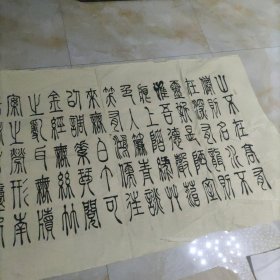 山不在高有
仙則名水不
在深有龍則
靈斯是陋室
惟吾德馨苔
痕上階綠草
色入簾青談
笑有鴻儒往
來無白丁可
以調素琴閱
金經無絲竹
之亂耳無牘
案之勞形南